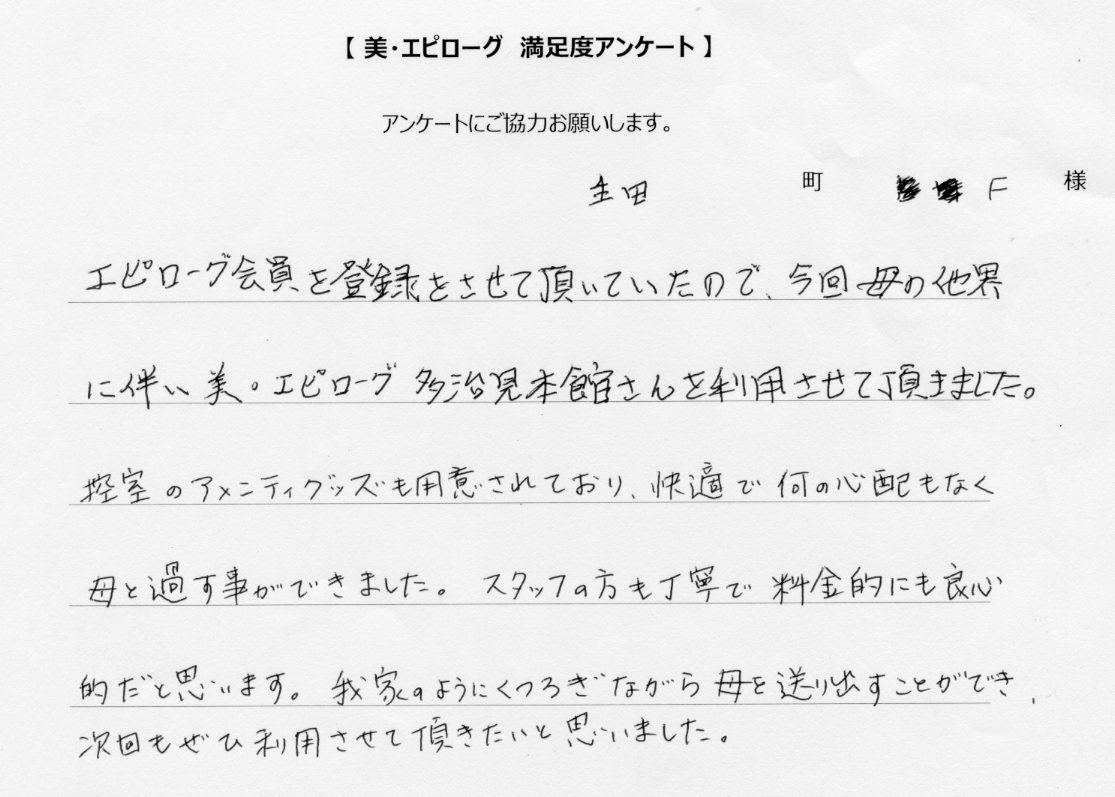 【 美・エピローグ 満足度アンケート 】
アンケートにご協力お願いします。
生田 町 F 様
エピローグ会員を登録をさせて頂いていたので、今回母の他界
に伴い美・エピローグ多治見本館さんを利用させて頂きました。
控室のアメニティグッズも用意されており、快適で何の心配もなく
母と過す事ができました。スタッフの方も丁寧で料金的にも良心
的だと思います。我家のようにくつろぎながら母を送り出すことができ、
次回もぜひ利用させて頂きたいと思いました。